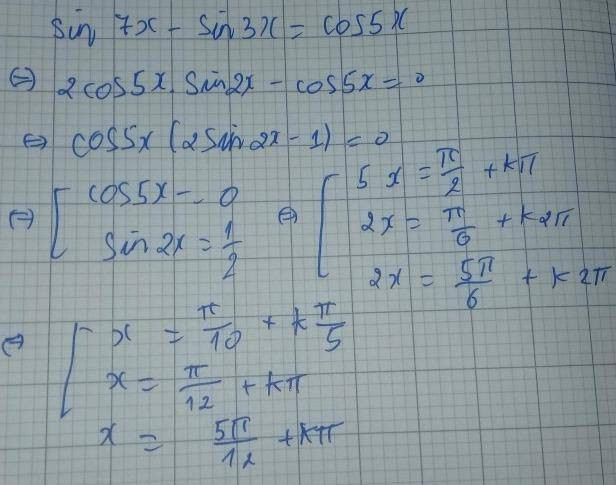 sin 7x - sin 3x = cos5x
⇔ 2cos5x. sin2x - cos5x = 0
⇔ cos5x (2sin 2x - 1) = 0
⇔ [ cos5x = 0 ⇔ [ 5x = π/2 + kπ
sin 2x = 1/2 2x = π/6 + k2π
2x = 5π/6 + k2π
⇔ [ x = π/10 + k π/5
x = π/12 + kπ
x = 5π/12 + kπ